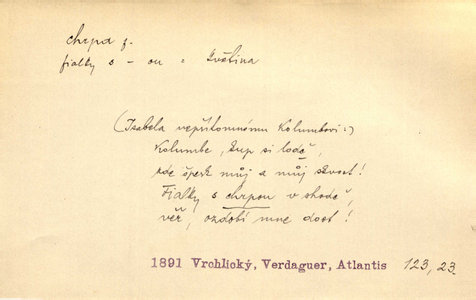 chrpa f.
fialky s - ou = květina
(Isabela nepřítomnému Kolumbovi:)
Kolumbe, kup si loďě,
zde šperk můj a můj skvost!
Fialky s chrpou v shodě,
věř, ozdobí mne dost!
1891 Vrchlický, Verdaguer, Atlantis 123, 23.